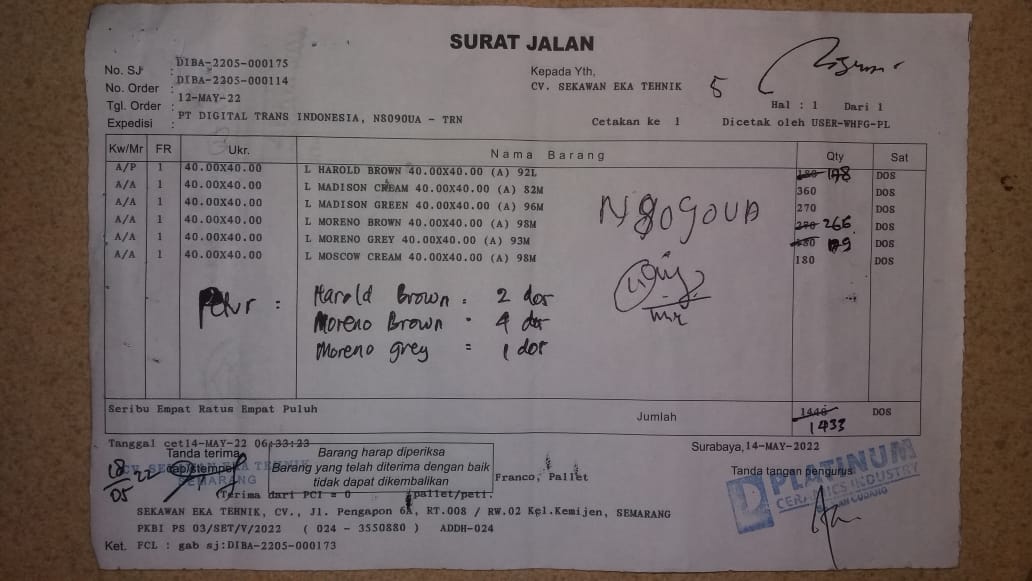 SURAT JALAN
No. SJ : DIBA-2205-000175
No. Order : DIBA-2205-000114
Tgl. Order : 12-MAY-22
Expedisi : PT DIGITAL TRANS INDONESIA, N8090UA - TRN
Kepada Yth,
CV. SEKAWAN EKA TEHNIK
5
Hal : 1 Dari 1
Cetakan ke 1 Dicetak oleh USER-WHFG-PL
Kw/Mr FR Ukr. Nama Barang Qty Sat
A/P 1 40.00X40.00 L HAROLD BROWN 40.00X40.00 (A) 92L 180 178 DOS
A/A 1 40.00X40.00 L MADISON CREAM 40.00X40.00 (A) 82M 360 DOS
A/A 1 40.00X40.00 L MADISON GREEN 40.00X40.00 (A) 96M 270 DOS
A/A 1 40.00X40.00 L MORENO BROWN 40.00X40.00 (A) 98M 270 266 DOS
A/A 1 40.00X40.00 L MORENO GREY 40.00X40.00 (A) 93M 180 179 DOS
A/A 1 40.00X40.00 L MOSCOW CREAM 40.00X40.00 (A) 98M 180 DOS
: Harold Brown = 2 dos
Moreno Brown = 4 dos
Moreno grey = 1 dos
Seribu Empat Ratus Empat Puluh
Jumlah 1440 DOS
1433
Tanggal cet14-MAY-22 06:33:23
Tanda terima
cap/stempel
CV. SEKAWAN EKA TEHNIK
SEMARANG
18/05 22
Barang harap diperiksa
Barang yang telah diterima dengan baik
tidak dapat dikembalikan
Franco, Pallet
Surabaya,14-MAY-2022
Tanda tangan pengurus
PLATINUM
CERAMICS INDUSTRY
(Terima dari PCI = 0 pallet/peti.
SEKAWAN EKA TEHNIK, CV., Jl. Pengapon 6A, RT.008 / RW.02 Kel.Kemijen, SEMARANG
PKBI PS 03/SET/V/2022 ( 024 - 3550880 ) ADDH-024
Ket. FCL : gab sj:DIBA-2205-000173